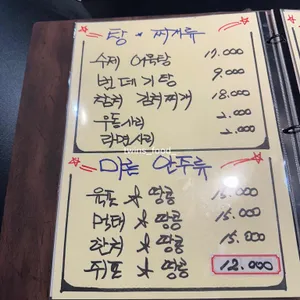 탕 * 찌개류
수제 어묵탕 17.000
번데기탕 9.000
참치 김치찌개 18.000
우동사리 2.000
라면사리 2.000
twins_food
마른 안주류
육포 * 땅콩 15.000
먹태 * 땅콩 15.000
한치 * 땅콩 15.000
쥐포 * 땅콩 12.000